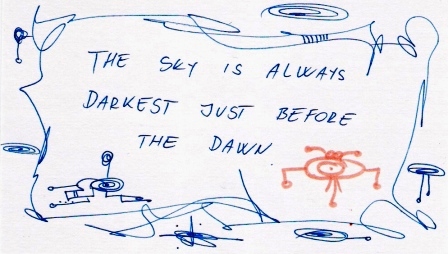 THE SKY IS ALWAYS
DARKEST JUST BEFORE
THE DAWN